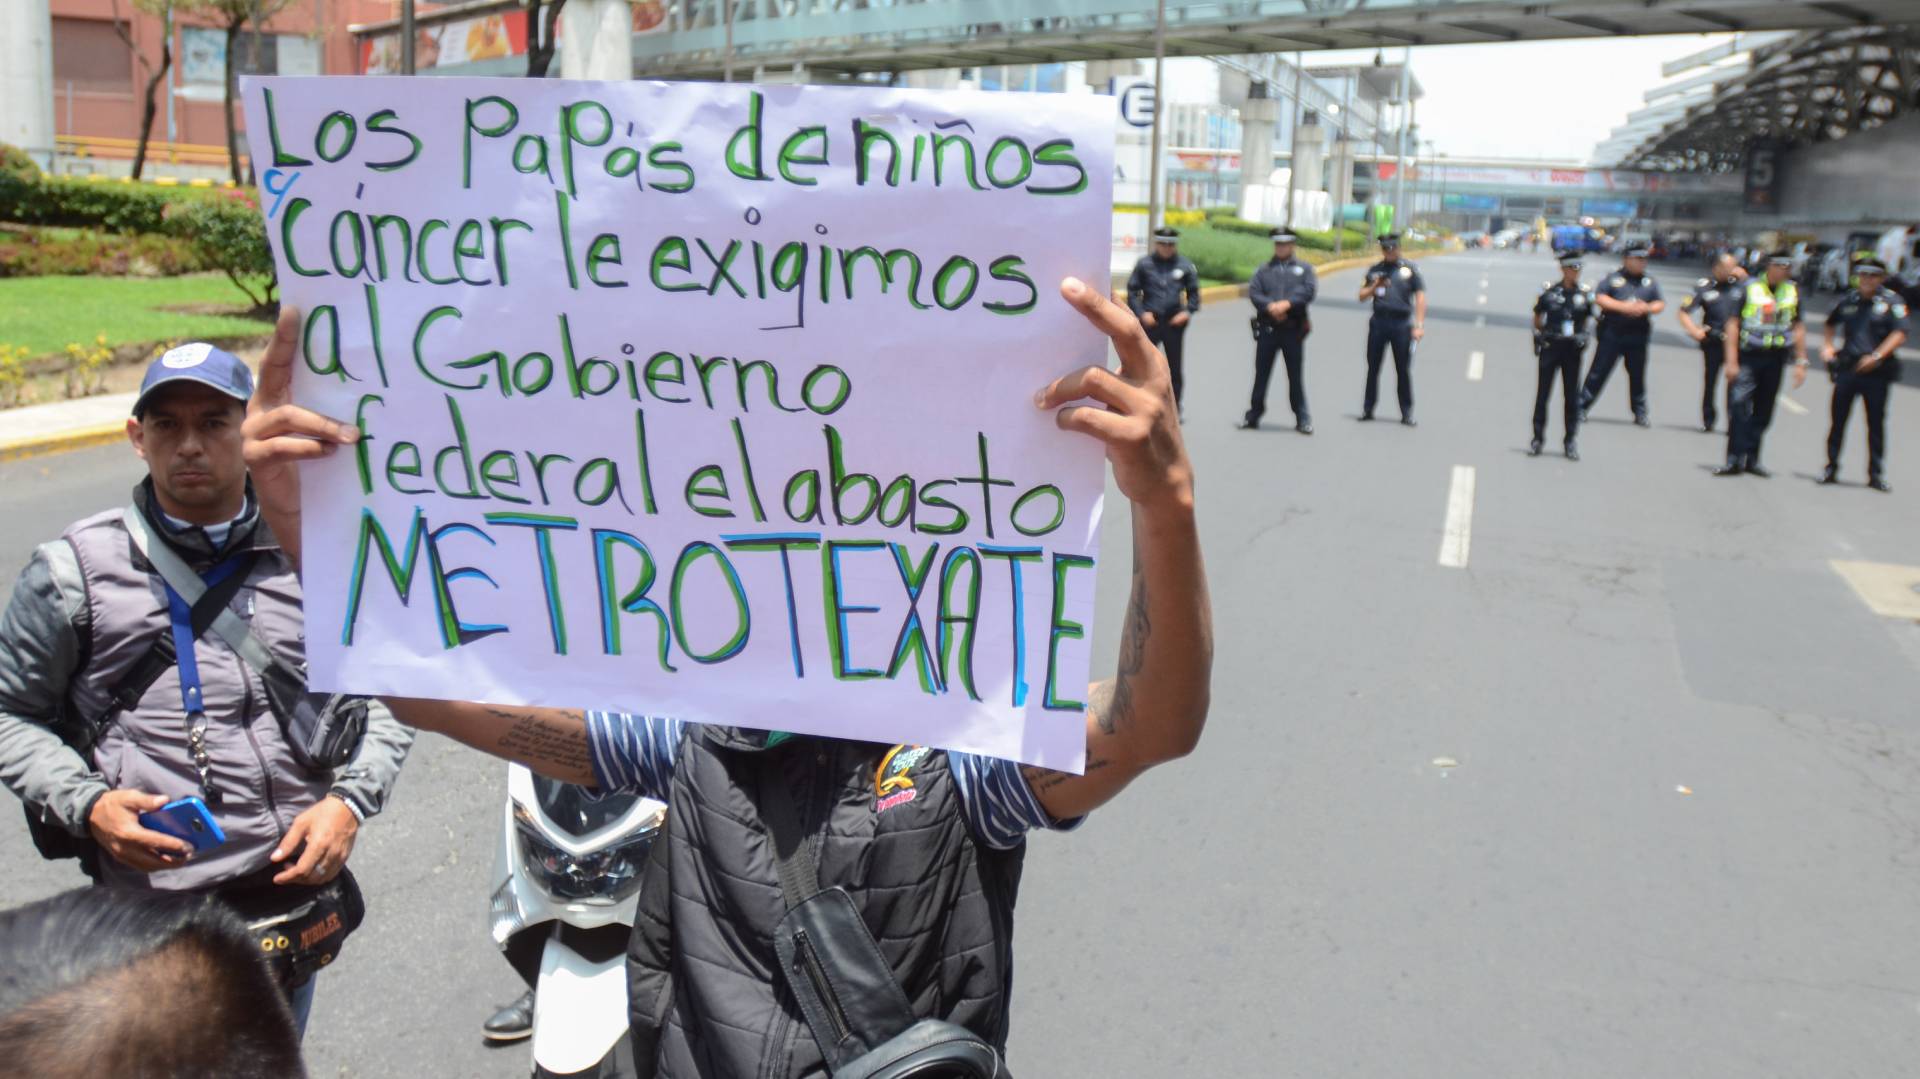 Los PaPás de niños
c/ cáncer le exigimos
al Gobierno
federal el abasto
METROTEXATE
E
5
JUBILEE